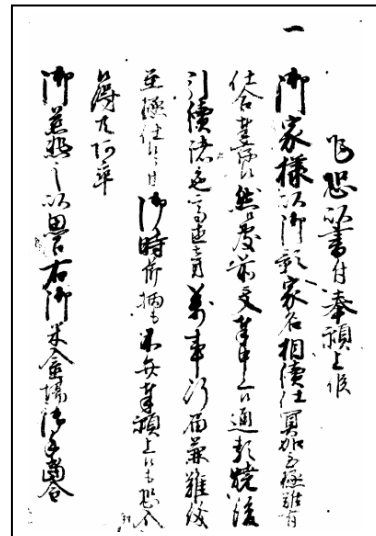 乍恐以書付奉願上候
一 御家様以御影家名相續仕冥加至極難有
仕合奉存候然處前文奉申上候通類焼後
引續諸色高直ニ付萬事行届兼難渋
至極仕候ニ付御時節柄も不弁奉願上候も恐入
得共何卒
御慈悲之以思召右御米金